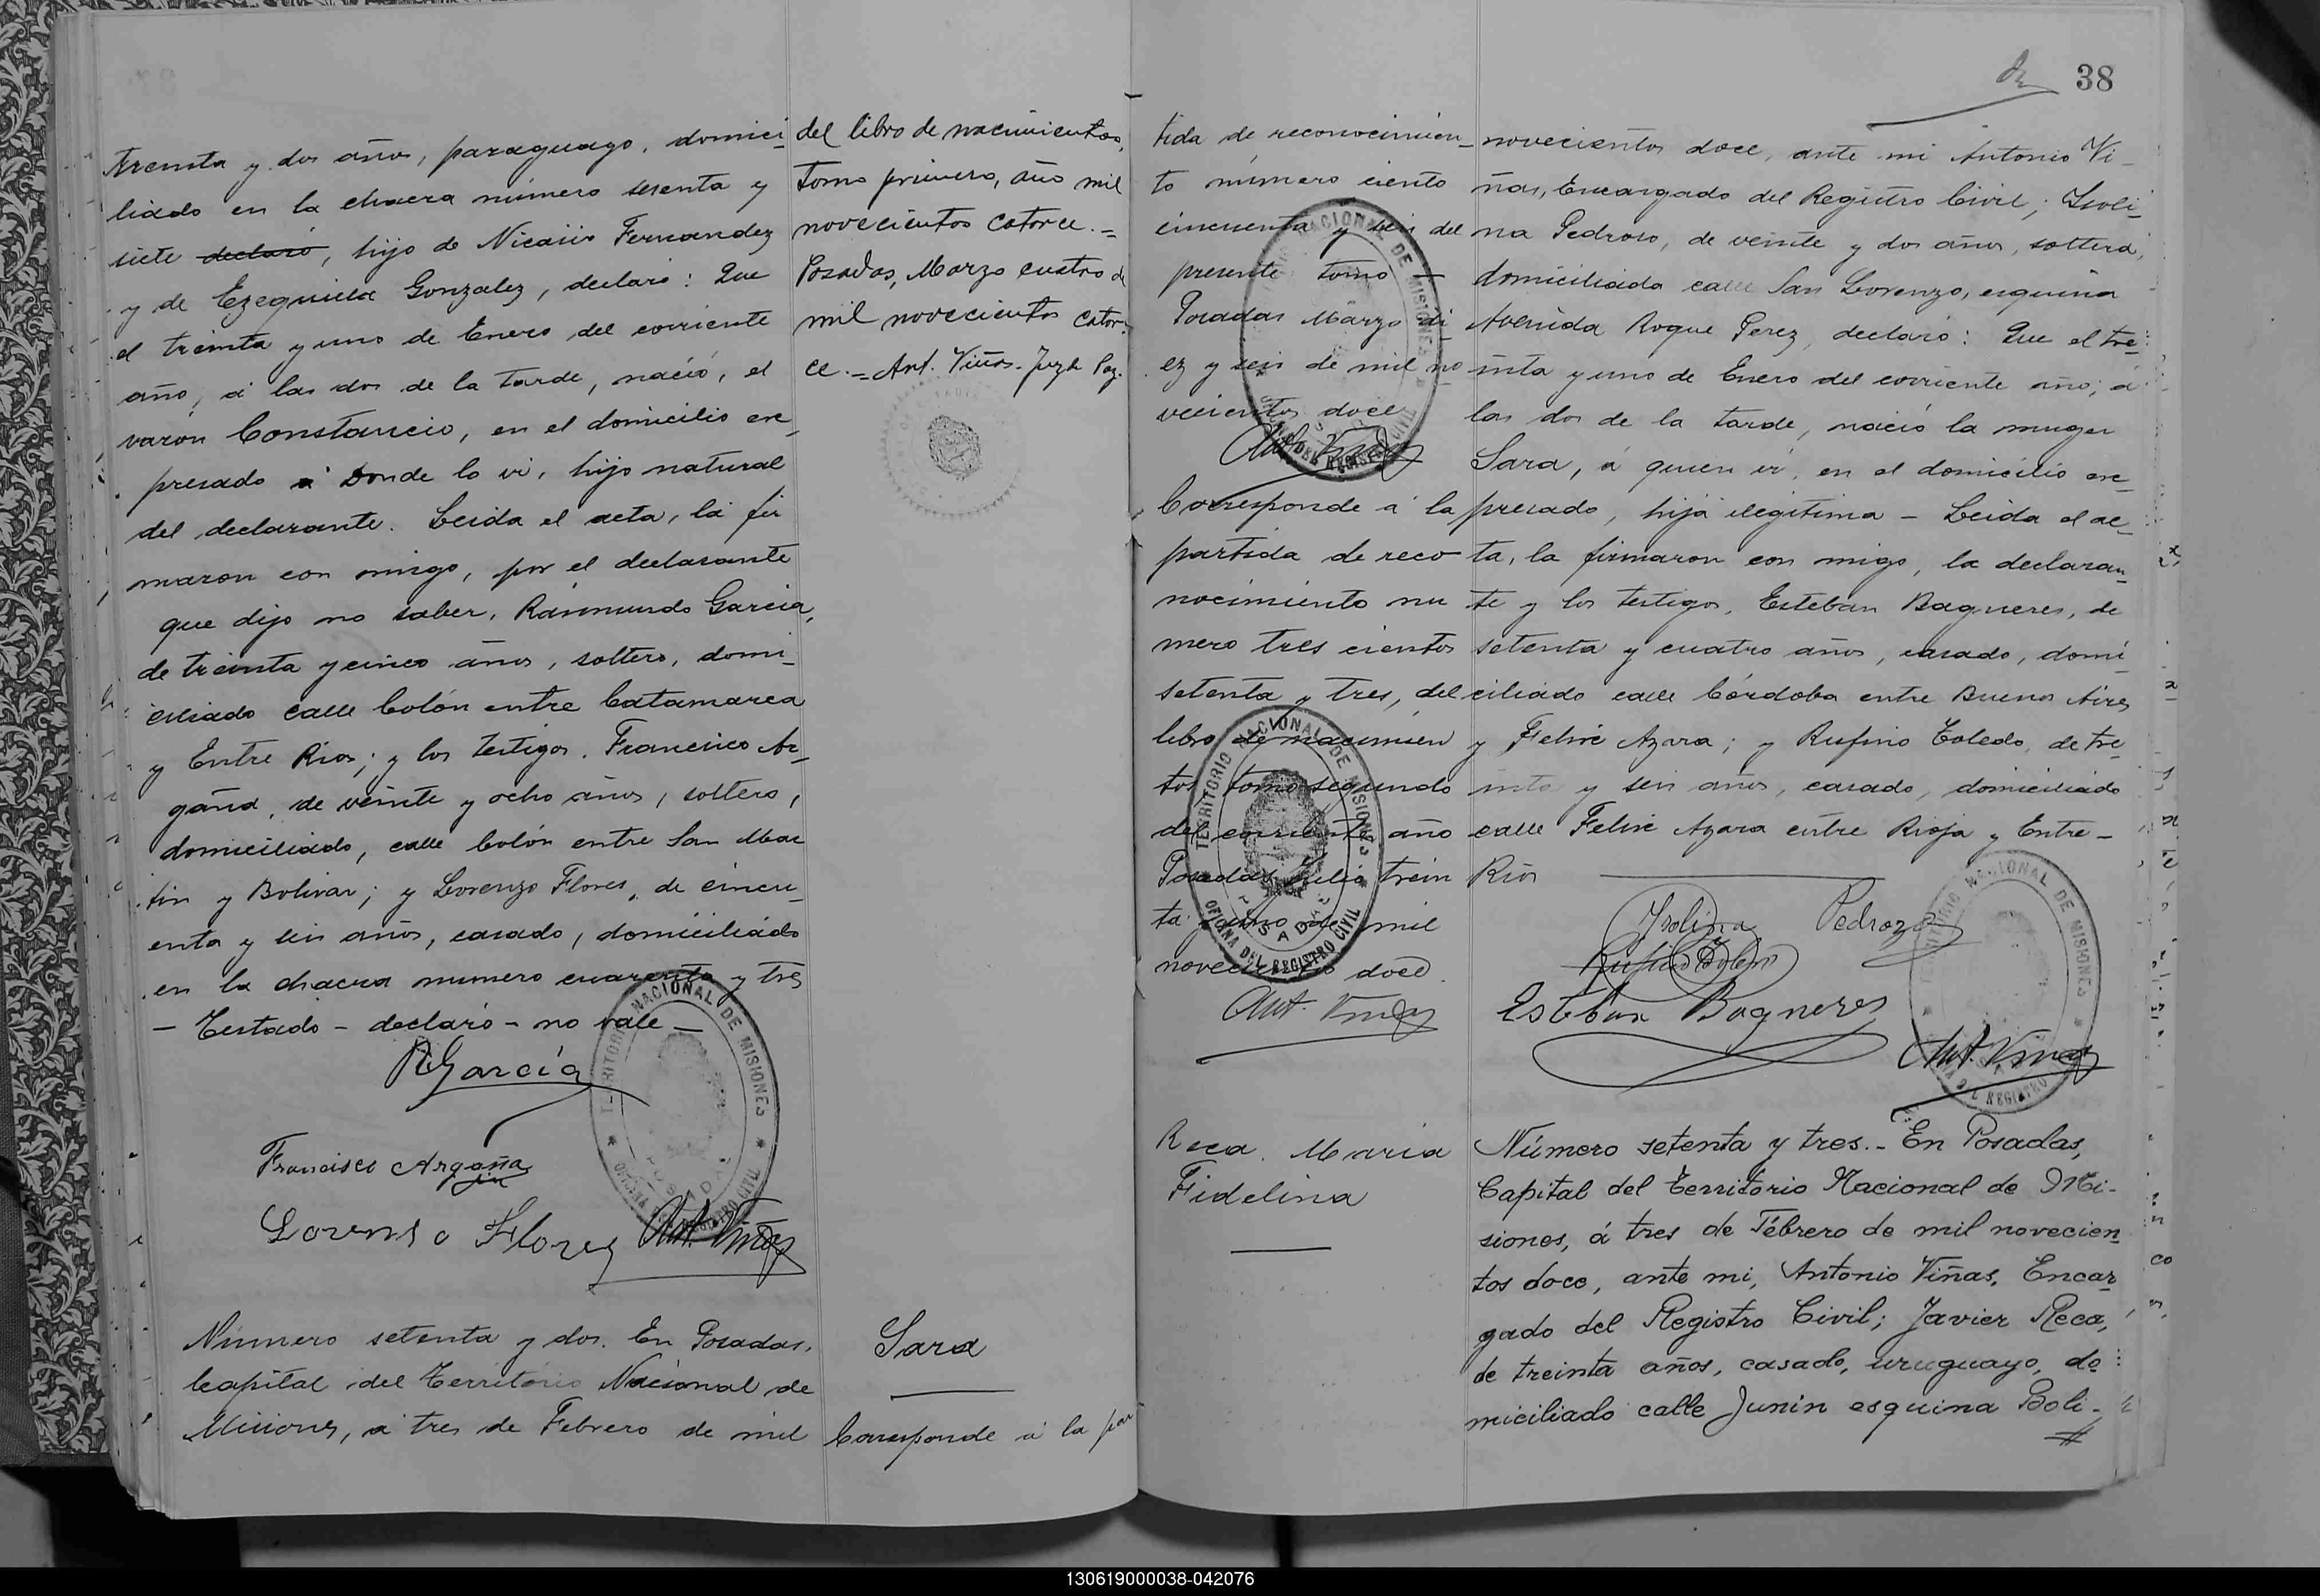 treinta y dos años, paraguayo, domici-
liado en la chacra número sesenta y
siete declaró, hijo de Nicasio Fernandez
y de Ezequiela Gonzalez, declaró: Que
el treinta y uno de Enero del corriente
año, á las dos de la tarde, nació, el
varón Constancio, en el domicilio ex-
presado á donde lo vi, hijo natural
del declarante. Leida el acta, la fir
maron con migo, por el declarante
que dijo no saber, Raimundo Garcia,
de treinta y cinco años, soltero, domi-
ciliado calle Colón entre Catamarca
y Entre Rios; y los testigos, Francisco Ar-
gaña, de veinte y ocho años, soltero,
domiciliado, calle Colón entre San Mar
tin y Bolivar; y Lorenzo Flores, de cincu-
enta y seis años, casado, domiciliado
en la chacra numero cuarenta y tres
— Testado - declaró - no vale —
RGarcía
Francisco Argaña
Lorenso Flores Ant. Viñas
TERRITORIO NACIONAL DE MISIONES
POSADAS
OFICINA DEL REGISTRO CIVIL
Número setenta y dos. En Posadas,
Capital del Territorio Nacional de
Misiones, á tres de Febrero de mil
del libro de nacimientos,
tomo primero, año mil
novecientos catorce.=
Posadas, Marzo cuatro de
mil novecientos cator-
ce.= Ant. Viñas. Juez de Paz.
Sara
Corresponde á la par
38
tida de reconocimien-
to número ciento
cincuenta y seis del
presente tomo —
Posadas Marzo di
ez y seis de mil no
vecientos doce
Ant. Viñas
TERRITORIO NACIONAL DE MISIONES
OFICINA DEL REGISTRO CIVIL
Corresponde á la
partida de reco
nocimiento nu
mero tres cientos
setenta y tres, del
libro de nacimien
tos tomo segundo
del corriente año
Posadas Julio trein
ta y uno de mil
novecientos doce
Ant. Viñas
TERRITORIO NACIONAL DE MISIONES
POSADAS
OFICINA DEL REGISTRO CIVIL
novecientos doce, ante mi Antonio Vi-
ñas, Encargado del Registro Civil; Isoli-
na Pedroso, de veinte y dos años, soltera,
domiciliada calle San Lorenzo, esquina
Avenida Roque Perez, declaró: Que el tre-
inta y uno de Enero del corriente año; á
las dos de la tarde, nació la muger
Sara, á quien vi, en el domicilio ex-
presado, hija ilegitima — Leida el ac-
ta, la firmaron con migo, la declaran-
te y los testigos, Esteban Bagneres, de
setenta y cuatro años, casado, domi-
ciliado calle Córdoba entre Buenos Aires
y Felix Azara; y Rufino Toledo, de tre-
inta y seis años, casado, domiciliado
calle Felix Azara entre Rioja y Entre-
Rios
Isolina Pedrozo
Rufino Toledo
Esteban Bagneres
Ant. Viñas
TERRITORIO NACIONAL DE MISIONES
OFICINA DEL REGISTRO CIVIL
Reca. Maria
Fidelina
Número setenta y tres.- En Posadas,
Capital del Territorio Nacional de Mi-
siones, á tres de Febrero de mil novecien-
tos doce, ante mi, Antonio Viñas, Encar-
gado del Registro Civil; Javier Reca,
de treinta años, casado, uruguayo, do-
miciliado calle Junin esquina Boli-
130619000038-042076